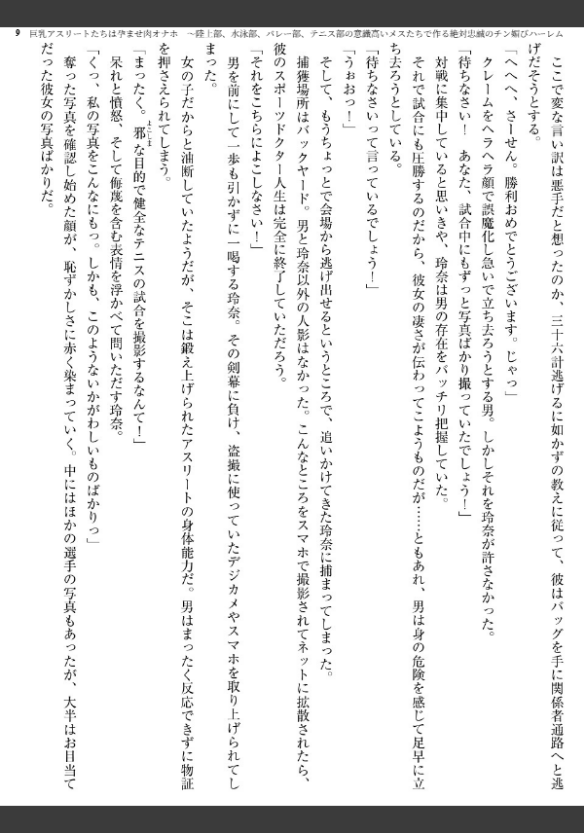 9　巨乳アスリートたちは孕ませ肉オナホ　～陸上部、水泳部、バレー部、テニス部の意識高いメスたちで作る絶対忠誠のチン媚びハーレム
　ここで変な言い訳は悪手だと想ったのか、三十六計逃げるに如かずの教えに従って、彼はバッグを手に関係者通路へと逃
げだそうとする。
「へへへ、さーせん。勝利おめでとうございます。じゃっ」
　クレームをヘラヘラ顔で誤魔化し急いで立ち去ろうとする男。しかしそれを玲奈が許さなかった。
「待ちなさい！　あなた、試合中にもずっと写真ばかり撮っていたでしょう！」
　対戦に集中していると思いきや、玲奈は男の存在をバッチリ把握していた。
　それで試合にも圧勝するのだから、彼女の凄さが伝わってこようものだが……ともあれ、男は身の危険を感じて足早に立
ち去ろうとしている。
「待ちなさいって言っているでしょう！」
「うぉおっ！」
　そして、もうちょっとで会場から逃げ出せるというところで、追いかけてきた玲奈に捕まってしまった。
　捕獲場所はバックヤード。男と玲奈以外の人影はなかった。こんなところをスマホで撮影されてネットに拡散されたら、
彼のスポーツドクター人生は完全に終了していただろう。
「それをこちらによこしなさい！」
　男を前にして一歩も引かずに一喝する玲奈。その剣幕に負け、盗撮に使っていたデジカメやスマホを取り上げられてし
まった。
　女の子だからと油断していたようだが、そこは鍛え上げられたアスリートの身体能力だ。男はまったく反応できずに物証
を押さえられてしまう。
「まったく。邪よこしまな目的で健全なテニスの試合を撮影するなんて！」
　呆れと憤怒、そして侮蔑を含む表情を浮かべて問いただす玲奈。
「くっ、私の写真をこんなにもっ。しかも、このようないかがわしいものばかりっ」
　奪った写真を確認し始めた顔が、恥ずかしさに赤く染まっていく。中にはほかの選手の写真もあったが、大半はお目当て
だった彼女の写真ばかりだ。